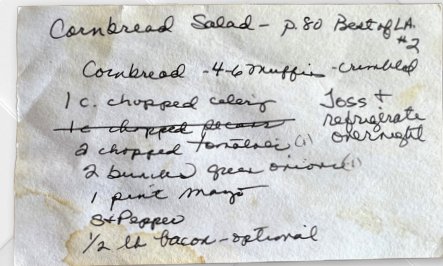 Cornbread Salad - p. 80 Best of LA. #2
Cornbread - 4-6 muffins - crumbled
1 c. chopped celery
1 c chopped pecans
2 chopped tomatoes (1)
2 bunches green onions (1)
1 pint mayo
S+Pepper
1/2 lb bacon - optional
Toss +
refrigerate
overnight